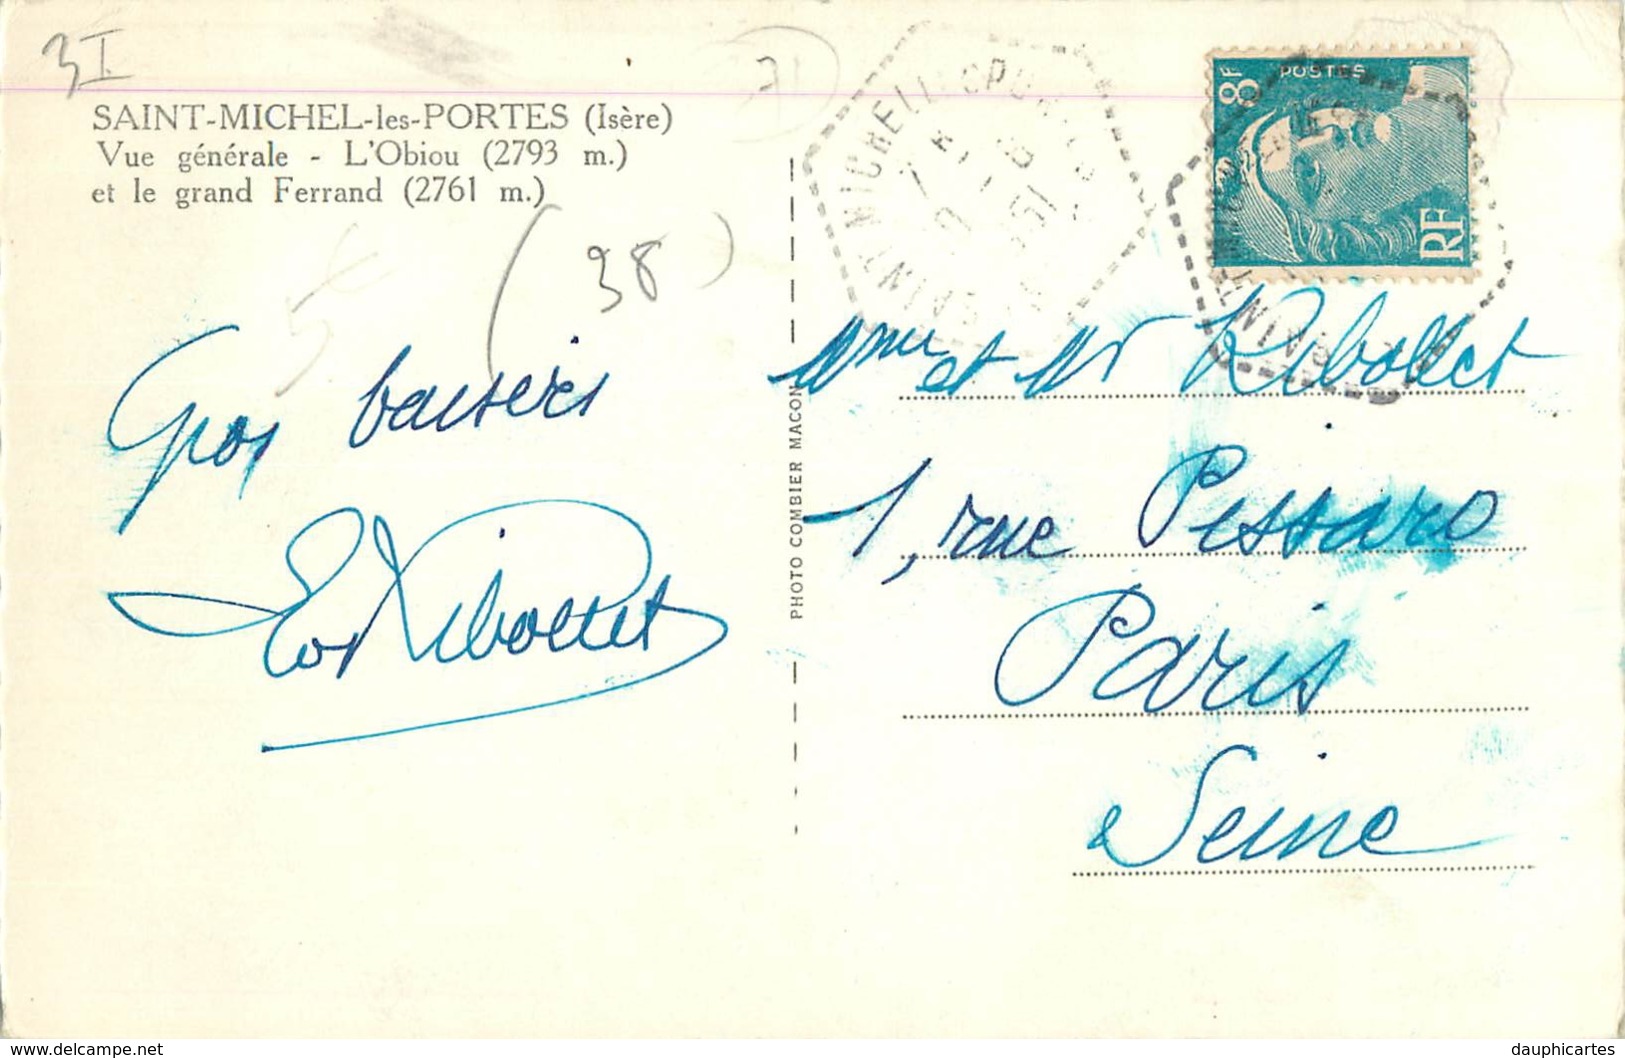 3I
SAINT-MICHEL-les-PORTES (Isère)
Vue générale - L'Obiou (2793 m.)
et le grand Ferrand (2761 m.)
(38)
Gros baisers
Ribollet
PHOTO COMBIER MACON
8F
POSTES
RF
Mme et Mr Ribollet
1, rue Pissaro
Paris
Seine
delcampe.net
dauphicartes